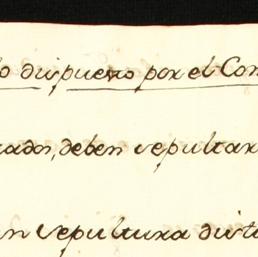 lo dispuesto por el Con
rados, deben sepultar
n sepultura dist